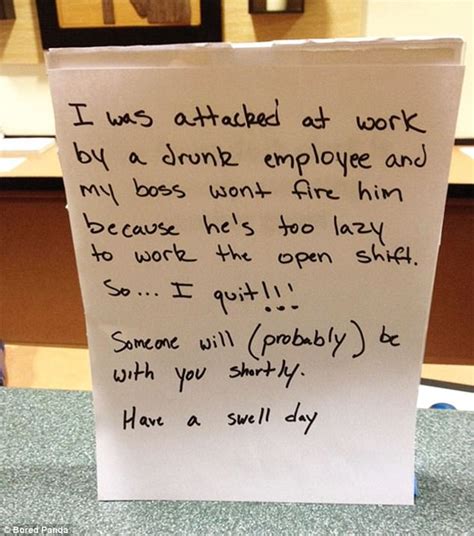 I was attacked at work
by a drunk employee and
my boss wont fire him
because he's too lazy
to work the open shift.
So... I quit!!!
Someone will (probably) be
with you shortly.
Have a swell day
© Bored Panda